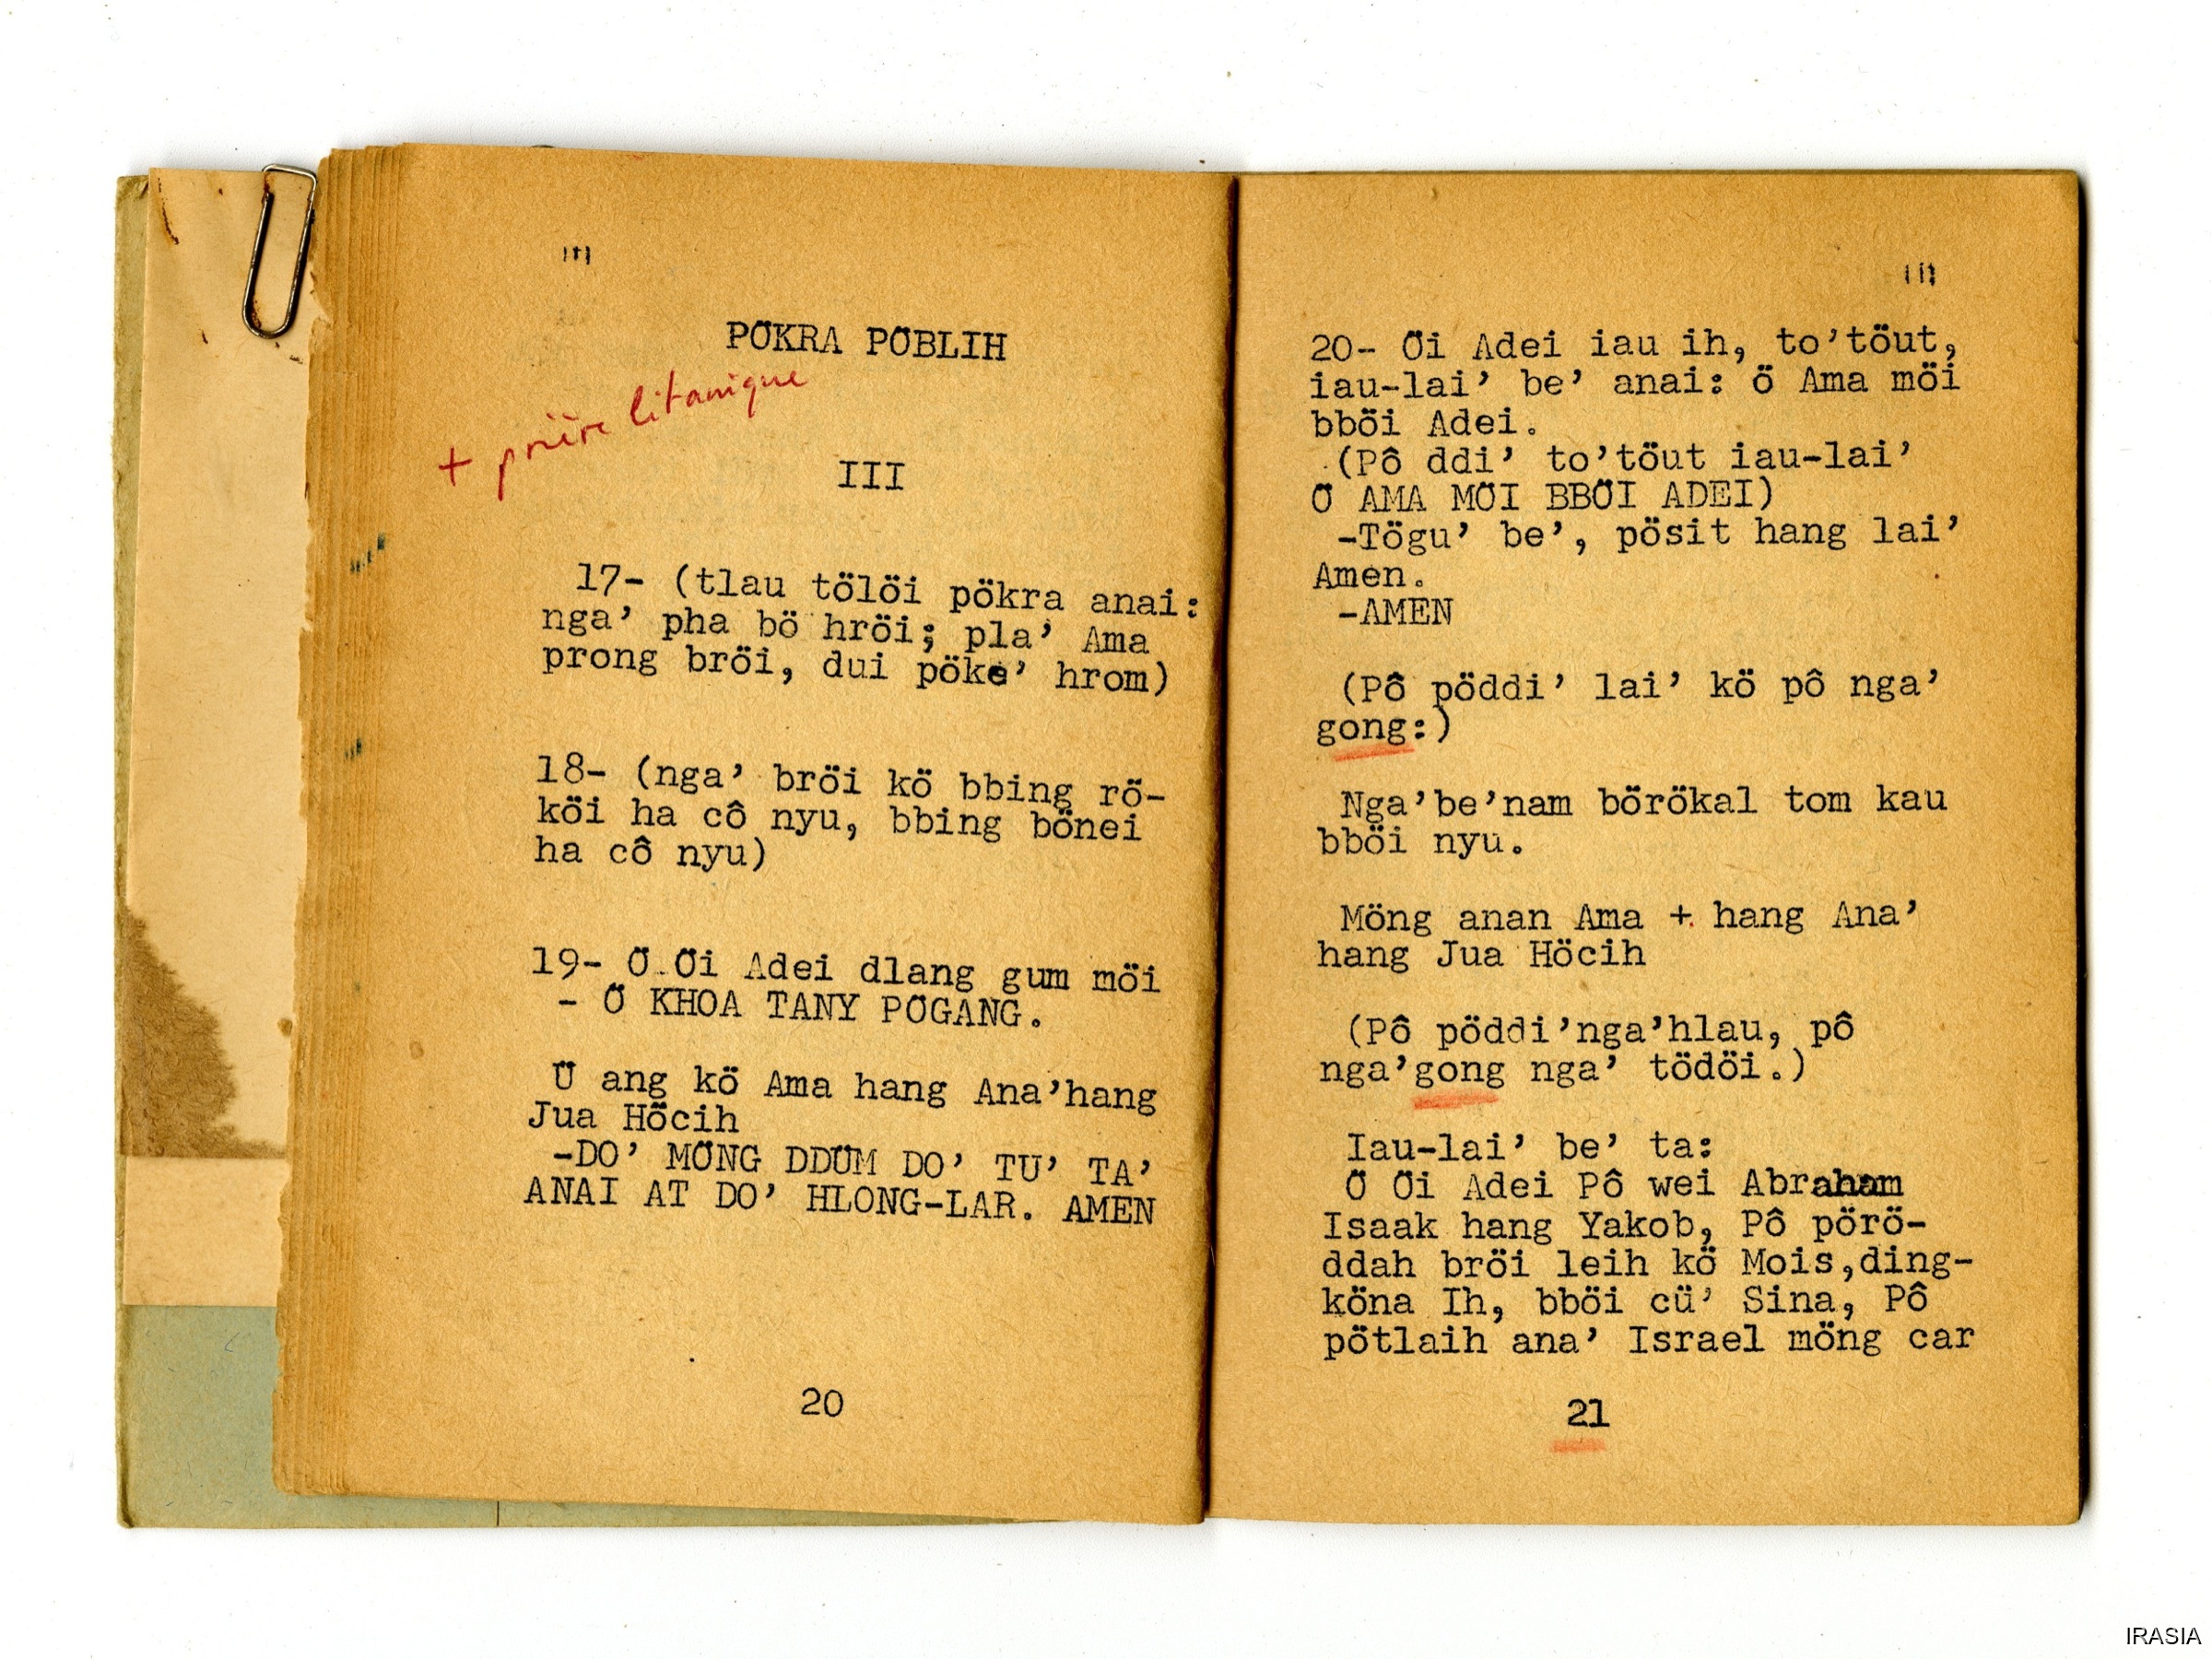 PÖKRA PÖBLIH
+ prière litanique
III
17- (tlau tölöi pökra anai:
nga’ pha bö hröi; pla’ Ama
prong bröi, dui pöke’ hrom)
18- (nga’ bröi kö bbing rö-
köi ha cô nyu, bbing bönei
ha cô nyu)
19- Ö Öi Adei dlang gum möi
- Ö KHOA TANY PÖGANG.
Ü ang kö Ama hang Ana’hang
Jua Höcih
-DO’ MÖNG DDÜM DO’ TU’ TA’
ANAI AT DO’ HLONG-LAR. AMEN
20
20- Öi Adei iau ih, to’töut,
iau-lai’ be’ anai: ö Ama möi
bböi Adei.
(Pô ddi’ to’töut iau-lai’
Ö AMA MÖI BBÖI ADEI)
-Tögu’ be’, pösit hang lai’
Amen.
-AMEN
(Pô pöddi’ lai’ kö pô nga’
gong:)
Nga’be’nam börökal tom kau
bböi nyu.
Möng anan Ama + hang Ana’
hang Jua Höcih
(Pô pöddi’nga’hlau, pô
nga’gong nga’ tödöi.)
Iau-lai’ be’ ta:
Ö Öi Adei Pô wei Abraham
Isaak hang Yakob, Pô pörö-
ddah bröi leih kö Mois,ding-
köna Ih, bböi cü’ Sina, Pô
pötlaih ana’ Israel möng car
21
IRASIA